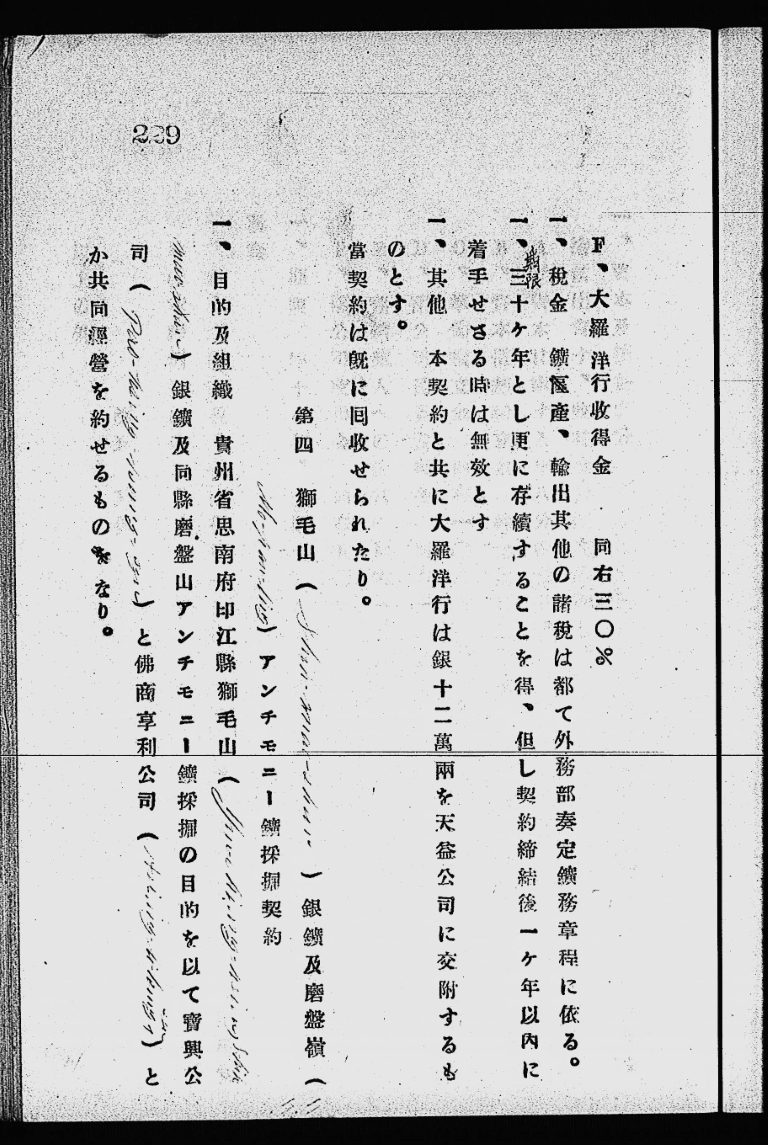 229
F、大羅洋行收得金　同右三〇％
一、稅金　鑛區產、輸出其他の諸稅は都て外務部奏定鑛務章程に依る。
一、期限三十ケ年とし更に存續することを得、但し契約締結後一ケ年以內に
着手せさる時は無效とす
一、其他　本契約と共に大羅洋行は銀十二萬兩を天益公司に交附するも
のとす。
當契約は旣に回收せられたり。
第四　獅毛山（Shih-mao-shan）銀鑛及磨盤嶺（
）アンチモニー鑛採掘契約
一、目的及組織　貴州省思南府印江縣獅毛山（
）銀鑛及同縣磨盤山アンチモニー鑛採掘の目的を以て寶興公
司（）と佛商享利公司（）と
か共同經營を約せるものなり。